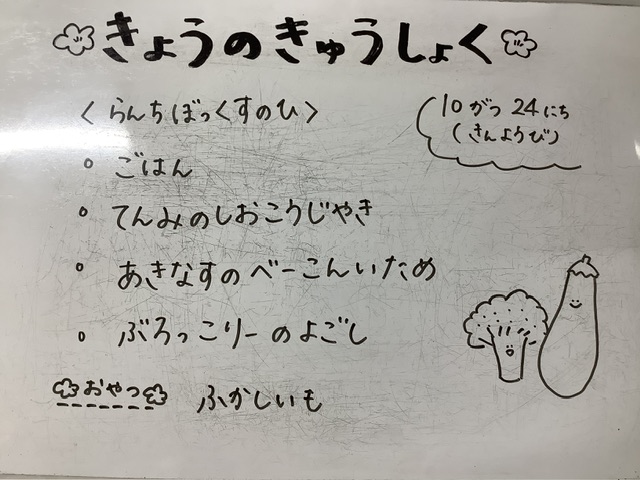 きょうのきゅうしょく
10がつ24にち
(きんようび)
〈らんちぼっくすのひ〉
。ごはん
。てんみのしおこうじやき
。あきなすのべーこんいため
。ぶろっこりーのよごし
おやつ ふかしいも